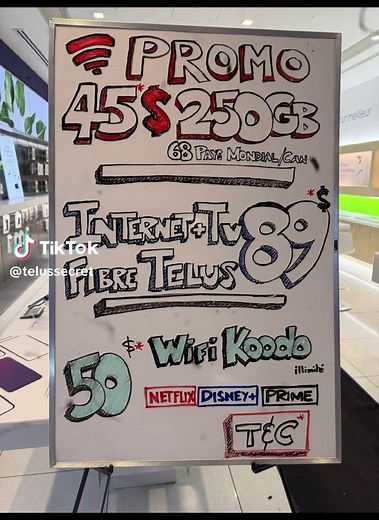 PROMO
45$* 250GB
68 PAYS MONDIAL/CAN
INTERNET+TV 89$*
FIBRE TELUS
TikTok
@telussecret
50$* WiFi Koodo
illimité
NETFLIX DISNEY+ PRIME
T&C*